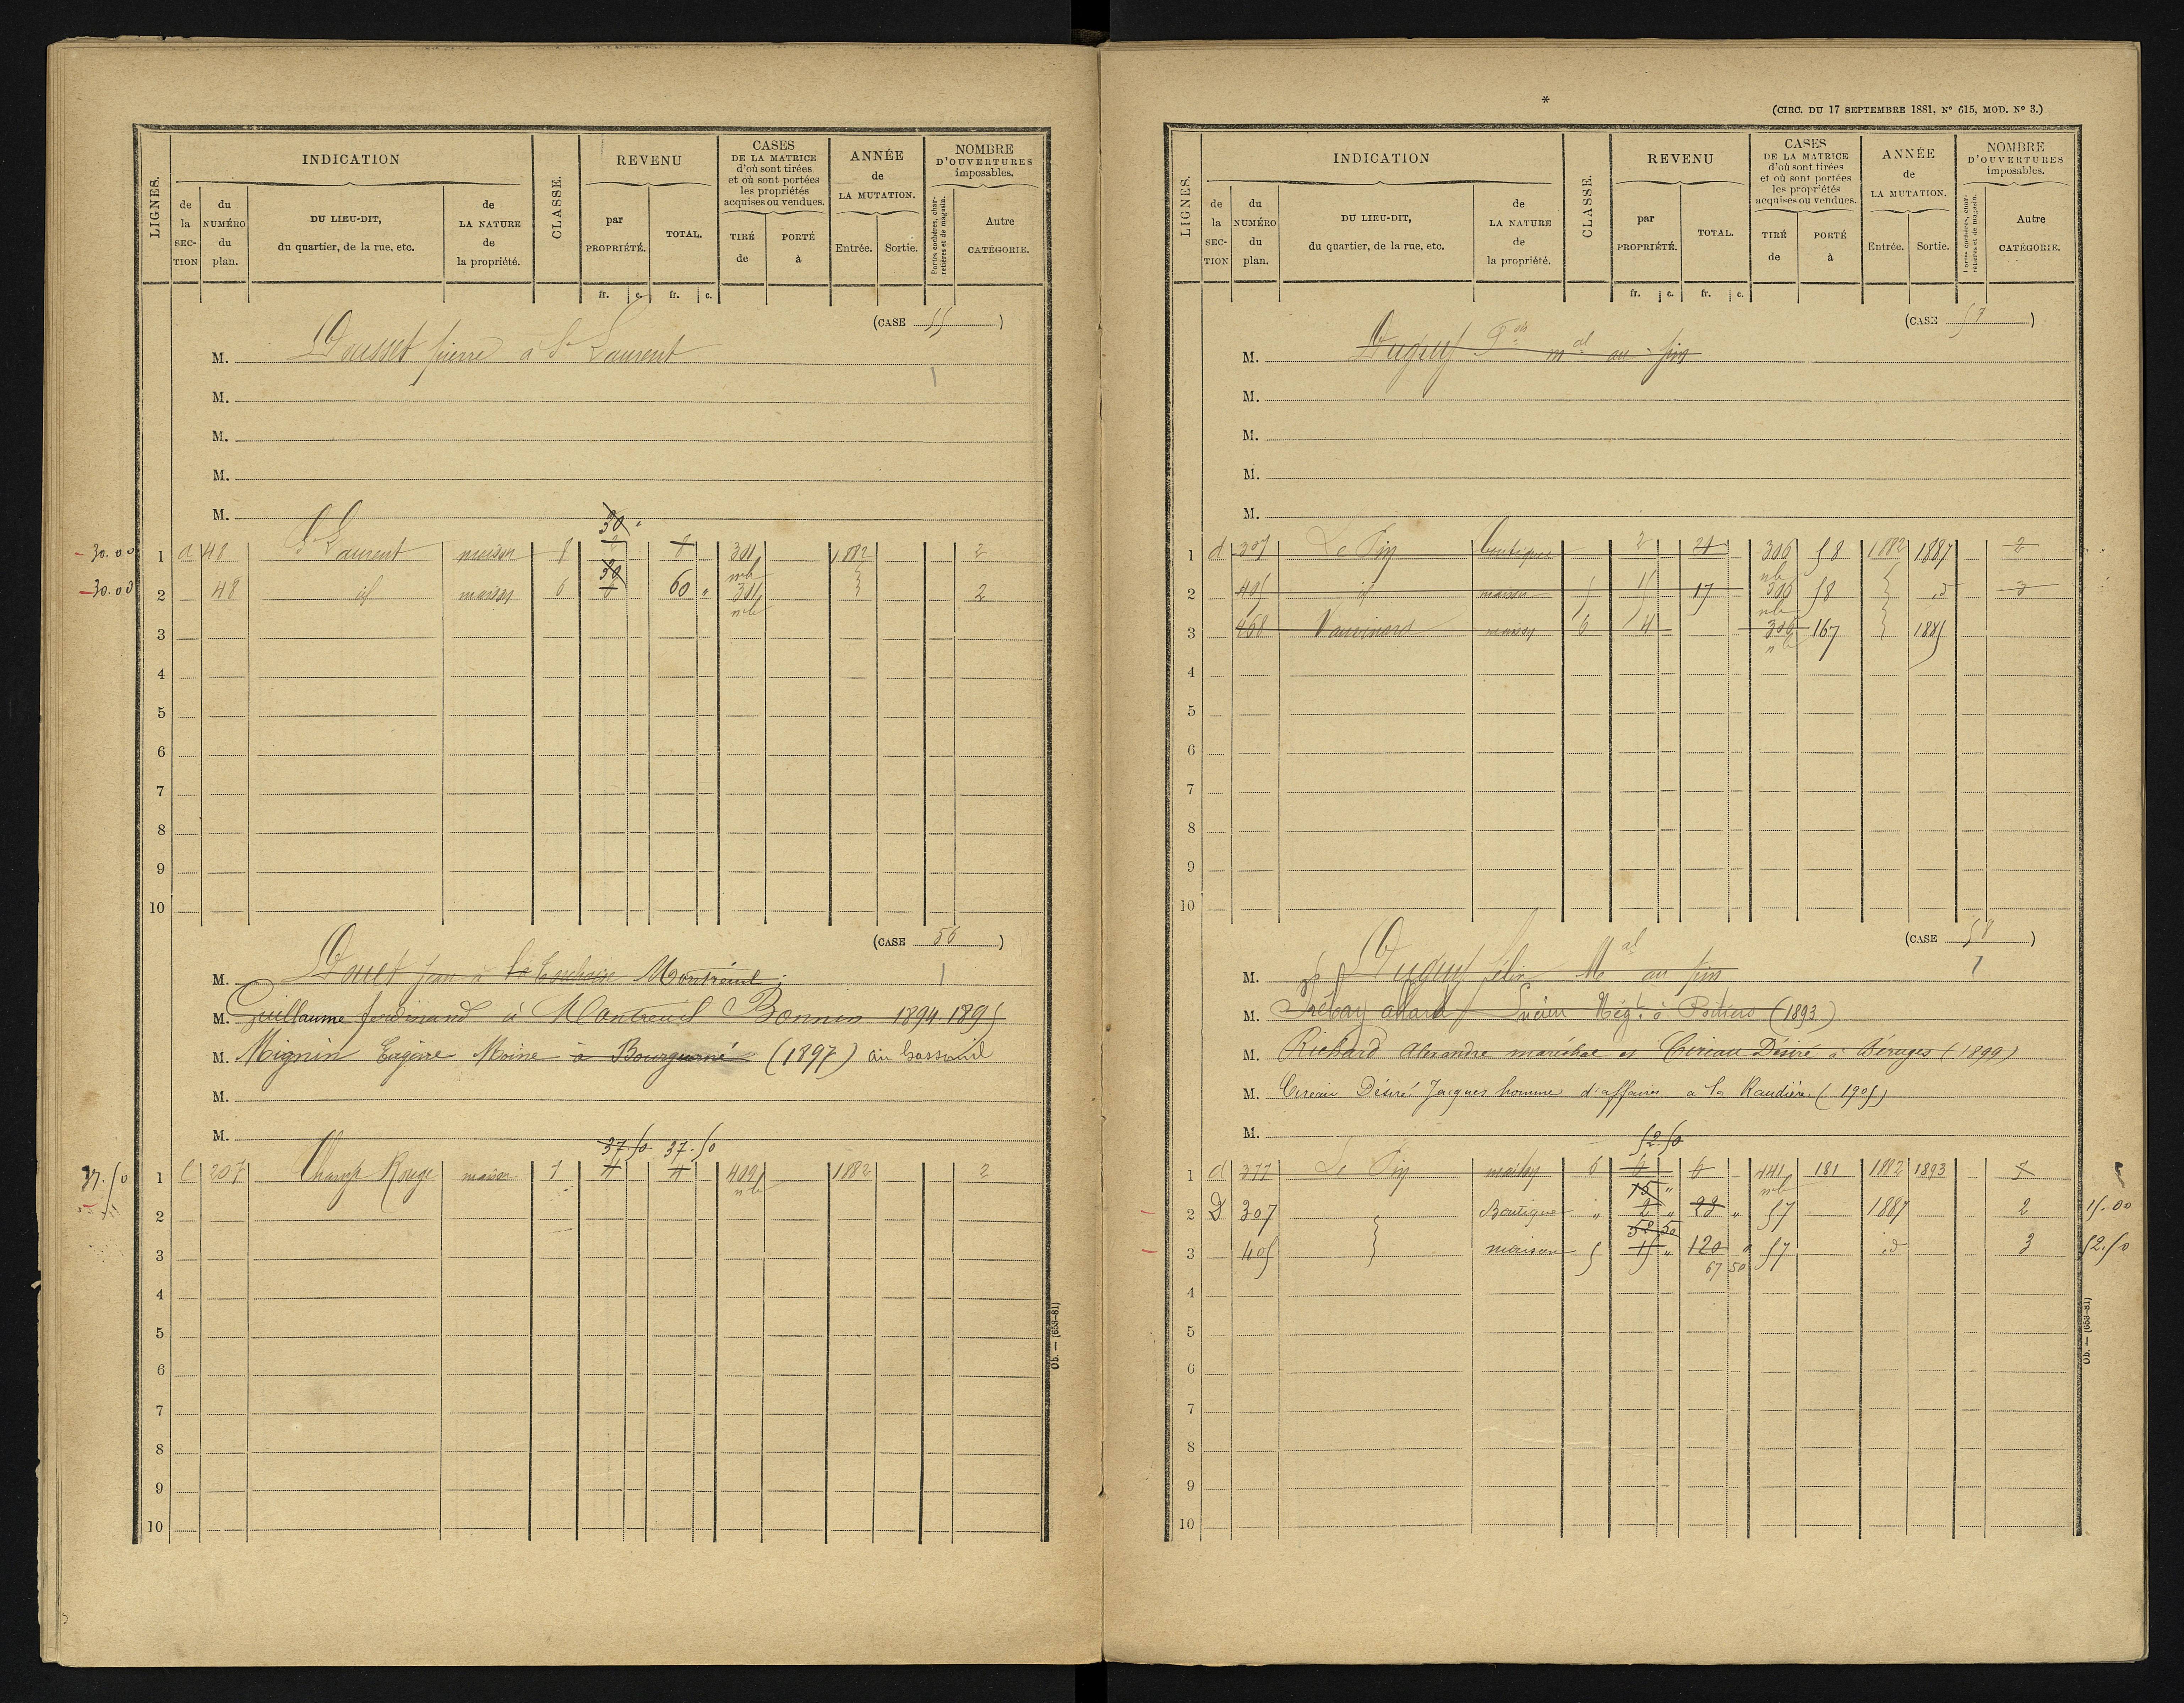 LIGNES.
INDICATION
de la SECTION
du NUMÉRO du plan.
DU LIEU-DIT, du quartier, de la rue, etc.
de LA NATURE de la propriété.
CLASSE.
REVENU
par PROPRIÉTÉ.
TOTAL.
CASES DE LA MATRICE d'où sont tirées et où sont portées les propriétés acquises ou vendues.
TIRÉ de
PORTÉ à
ANNÉE de LA MUTATION.
Entrée.
Sortie.
NOMBRE D'OUVERTURES imposables.
Portes cochères, charretières et de magasin.
Autre CATÉGORIE.
fr. c. fr. c.
(CASE 55)
M. Pierre à St Laurent
1
M.
M.
M.
M.
30 "
- 30.00 1 a 48 St Laurent maison 8 8 301 1882 2
nb
30
- 30.00 2 48 id maison 6 6 60 " 301 2
nb
3
4
5
6
7
8
9
10
(CASE 56)
M. Douet Jean à Montreuil
1
M. Guillaume ferdinand à Montreuil Bonnin 1894-1895
M. Mignin Eugène Moine à (1897) au
M.
M.
37.50 37.50
37.50 1 C 207 Champ Rouge maison 7 4 4 409 1882 2
nb
2
3
4
5
6
7
8
9
10
Ob. — (653-81)
*
(CIRC. DU 17 SEPTEMBRE 1881, N° 615, MOD. N° 3.)
LIGNES.
INDICATION
de la SECTION
du NUMÉRO du plan.
DU LIEU-DIT, du quartier, de la rue, etc.
de LA NATURE de la propriété.
CLASSE.
REVENU
par PROPRIÉTÉ.
TOTAL.
CASES DE LA MATRICE d'où sont tirées et où sont portées les propriétés acquises ou vendues.
TIRÉ de
PORTÉ à
ANNÉE de LA MUTATION.
Entrée.
Sortie.
NOMBRE D'OUVERTURES imposables.
Portes cochères, charretières et de magasin.
Autre CATÉGORIE.
fr. c. fr. c.
(CASE 57)
M. Fois mal au pin
M.
M.
M.
M.
1 d 307 Le Pin boutique 2 21 306 58 1882 1887 2
nb
2 405 id maison 5 15 17 306 58 id 3
nb
3 468 maison 6 4 306 167 1885
nb
4
5
6
7
8
9
10
(CASE 58)
M. félix Mal au pin
1
M. allard Lucien Négt. à Poitiers (1893)
M. Richard Alexandre maréchal et Cireau Désiré à Béruges (1899)
M. Cireau Désiré Jacques homme d'affaires a la Raudière (1905)
M.
52.50
1 d 377 Le Pin maison 6 6 6 441 181 1882 1893
nb
15 "
2 D 307 Boutique " 2 " 23 " 57 1887 2 15.00
52 50
3 405 maison 5 15 " 120 " 57 id 3 52.50
67 50
4
5
6
7
8
9
10
Ob. — (653-81)